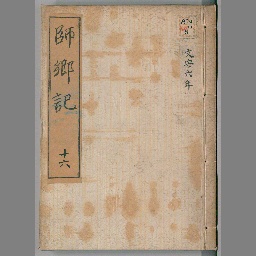 師郷記
十六
文安六年